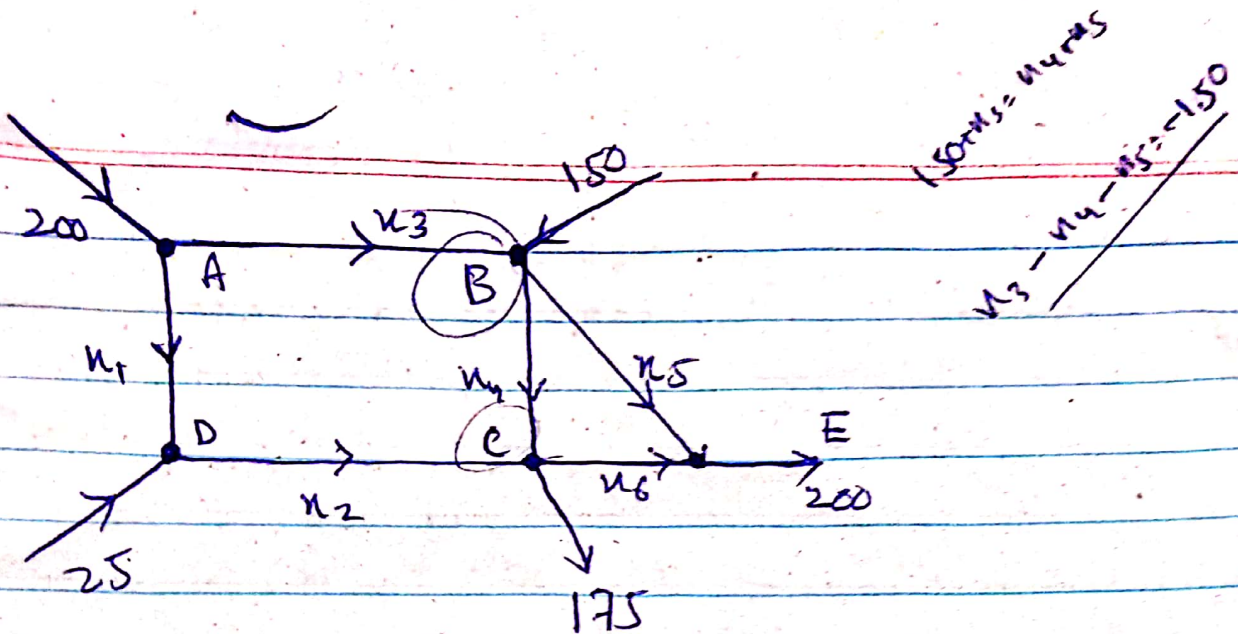 150+x₃=x₄+x₅
x₃-x₄-x₅=-150
150
200
x₃
A
B
x₁
x₄
x₅
D
C
E
x₂
x₆
200
25
175